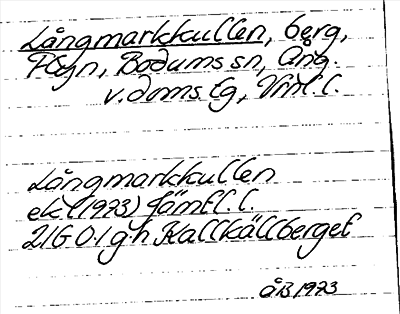 Långmarkkullen, berg,
Fsgn, Bodums sn, Ång.
v. doms. lg, Vnl. l.
Långmarkkullen
ek l (1973) Jämtl. l.
21G 0-1 g-h Kallkällberget
ÅB 1973